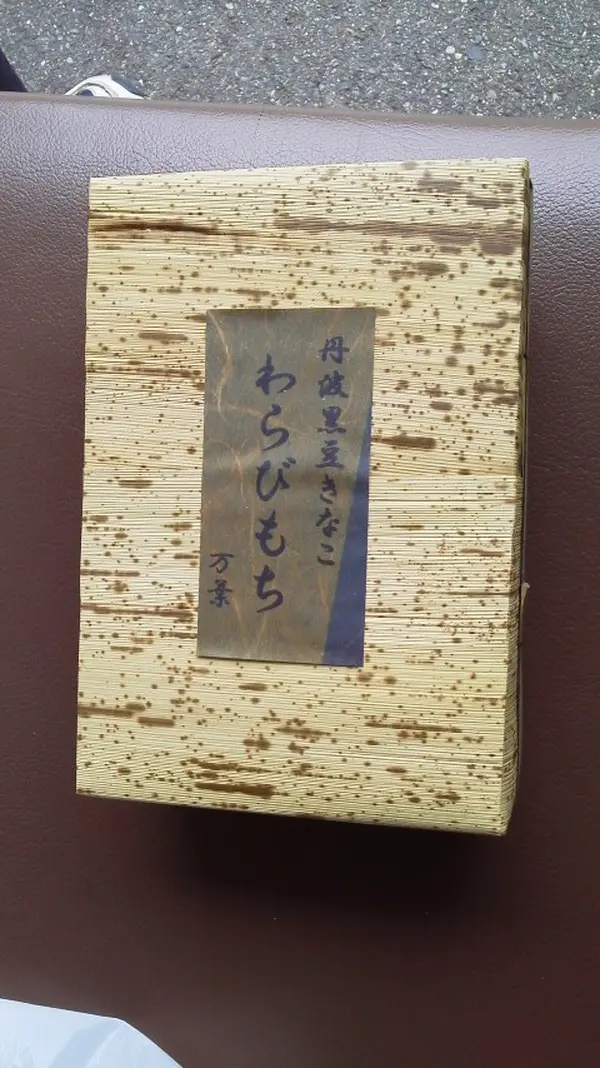 丹波黒豆きなこ
わらびもち
万葉